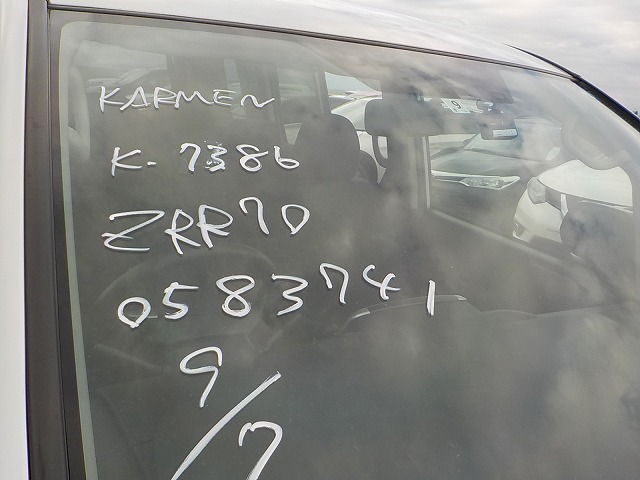 KARMEN
K-7386
ZRR70
0583741
9/7
9